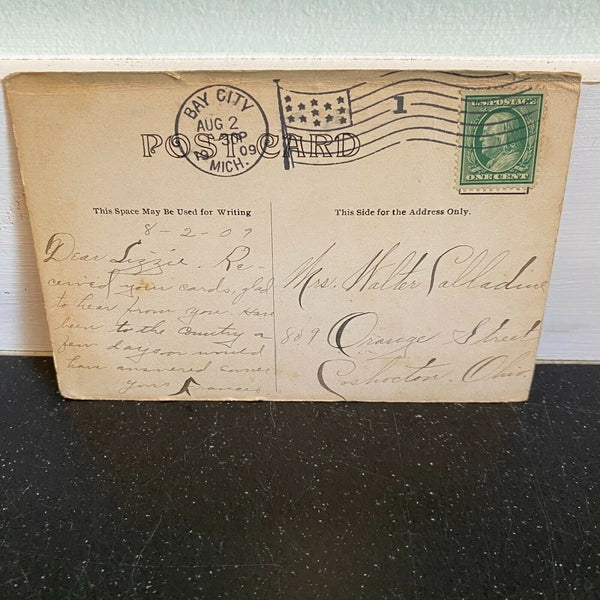 BAY CITY
AUG 2
30P
09
MICH.
1
U.S. POSTAGE
ONE CENT
POST CARD
This Space May Be Used for Writing
This Side for the Address Only.
8-2-09
Dear Lizzie. Re-
ceived your cards, glad
to hear from you. Have
been to the country a
few days or would
have answered sooner
yours Frances
Mrs. Walter Calladine
809 Orange Street
Coshocton. Ohio